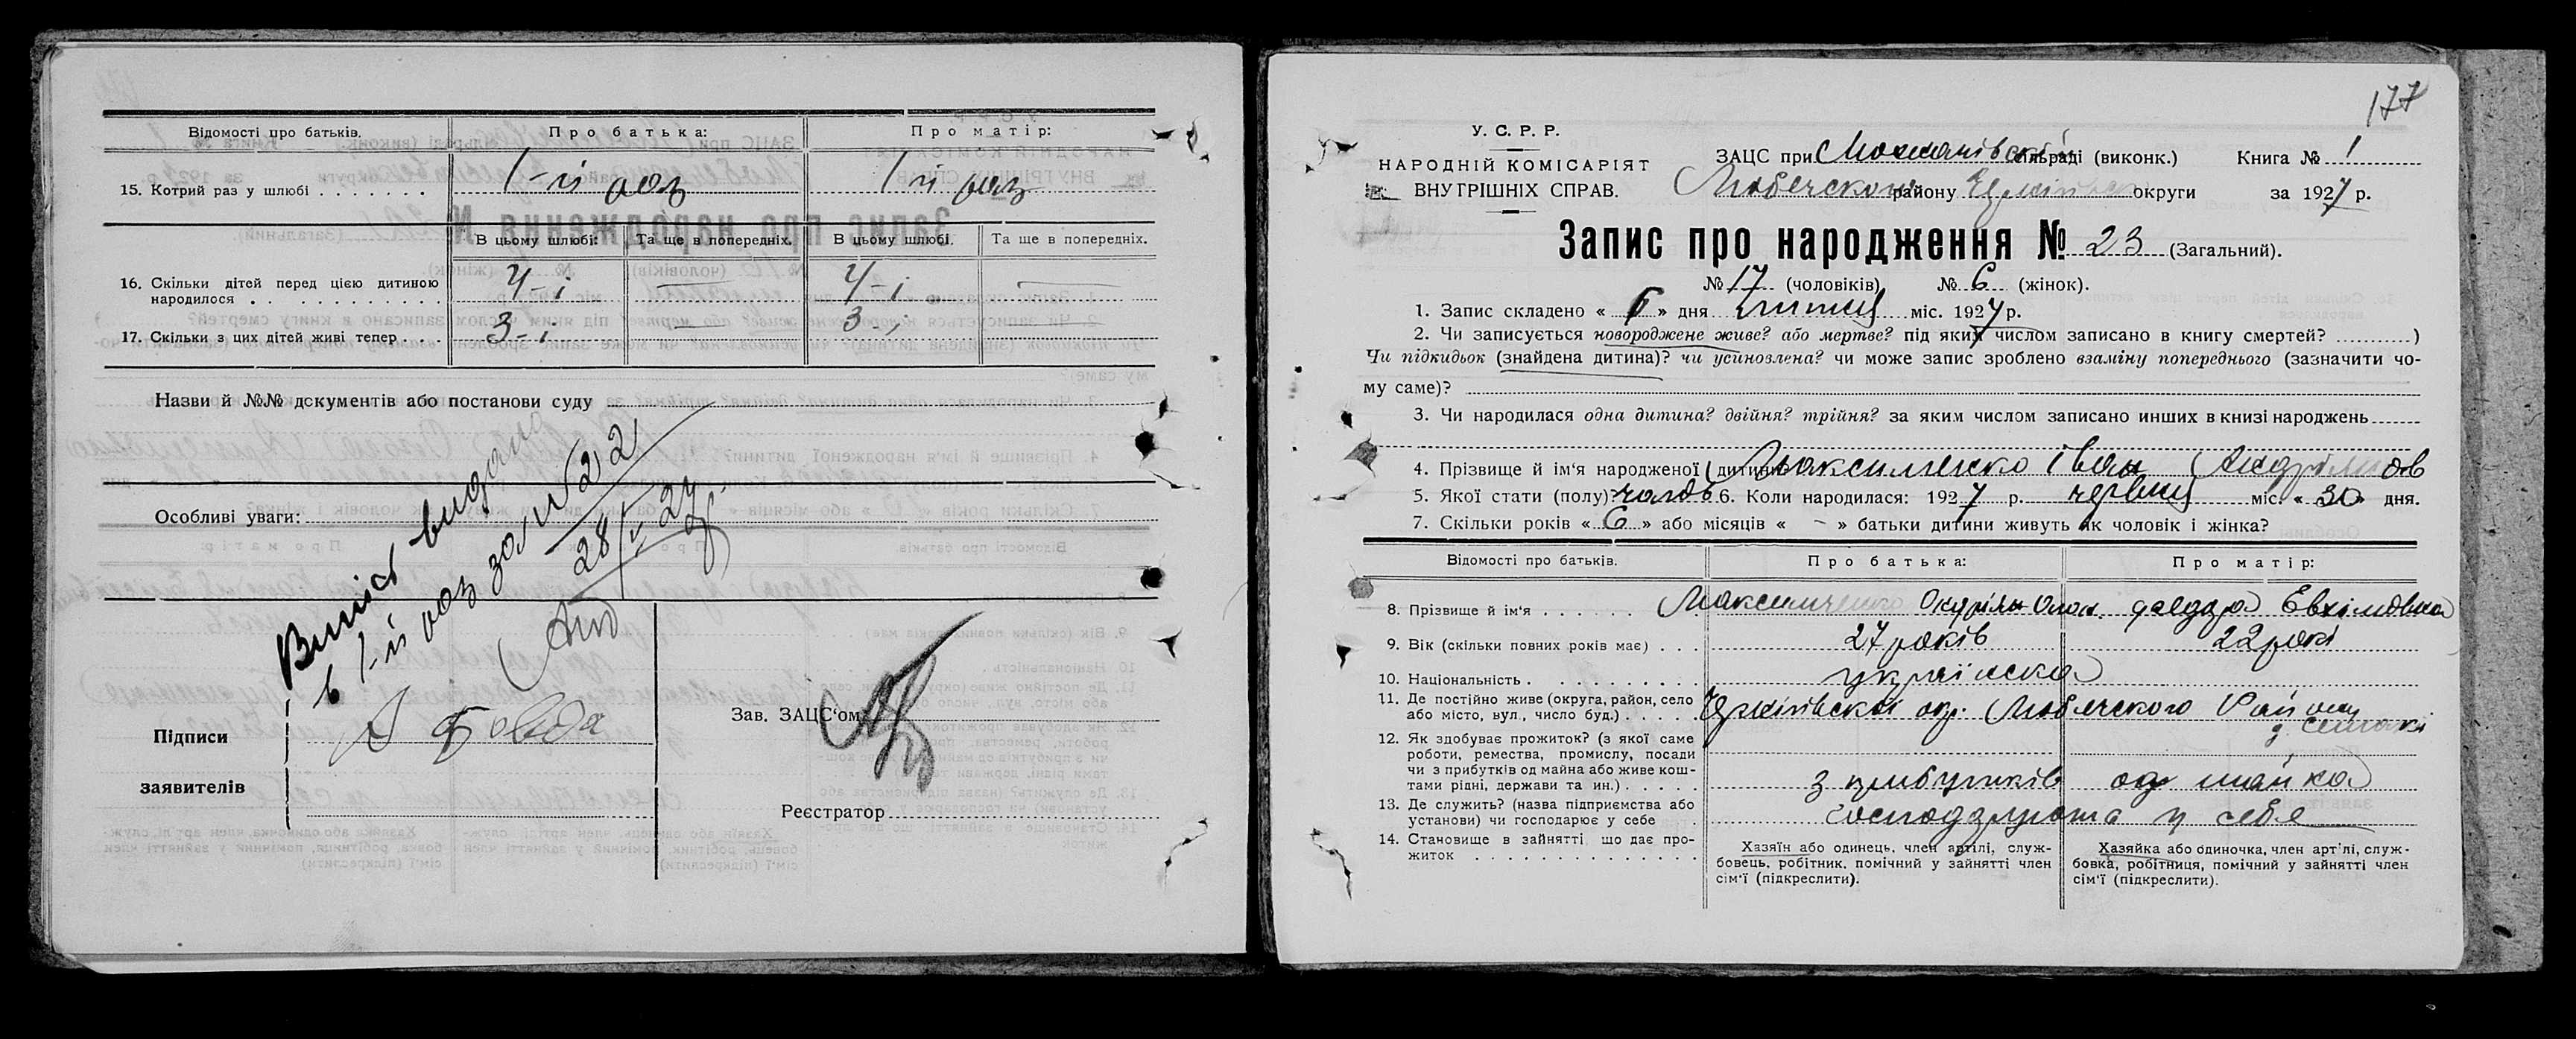 Відомості про батьків. Про батька: Про матір:
15. Котрий раз у шлюбі 1-й раз 1 й раз
В цьому шлюбі: Та ще в попередніх. В цьому шлюбі. Та ще в попередніх.
16. Скільки дітей перед цією дитиною народилося 4-і — 4-і —
17. Скільки з цих дітей живі тепер 3-і — 3-і —
Назви й №№ документів або постанови суду
Особливі уваги:
Випись видано
в 1-й раз за № 22
Підписи
заявителів
Зав. ЗАЦС'ом
Реєстратор
177
У. С. Р. Р.
НАРОДНІЙ КОМІСАРІЯТ
ВНУТРІШНІХ СПРАВ.
ЗАЦС при сільраді (виконк.) Книга № 1
Любечского району округи за 1927 р.
Запис про народження № 23 (Загальний).
№ 17 (чоловіків) № 6 (жінок).
1. Запис складено « » дня липця міс. 1927 р.
2. Чи записується новороджене живе? або мертве? під яким числом записано в книгу смертей? )
Чи підкидьок (знайдена дитина)? чи усиновлена? чи може запис зроблено взаміну попереднього (зазначити чо-
му саме)?
3. Чи народилася одна дитина? двійня? трійня? за яким числом записано инших в книзі народжень
4. Прізвище й ім'я народженої дитини Максименко Іван
5. Якої стати (полу)? 6. Коли народилася: 1927 р. червця міс. « 30 » дня.
7. Скільки років « 6 » або місяців « - » батьки дитини живуть як чоловік і жінка?
Відомості про батьків. Про батька: Про матір:
8. Прізвище й ім'я Максименко
9. Вік (скільки повних років має) 27 років 22 рокі
10. Національність українска
11. Де постійно живе (округа, район, село
або місто, вул., число буд.) Чернігівской окр. Любечского Району
12. Як здобуває прожиток? (з якої саме
роботи, ремества, промислу, посади
чи з прибутків од майна або живе кош-
тами рідні, держави та ин.) з прибутків од майна
13. Де служить? (назва підприємства або
установи) чи господарює у себе у себе
14. Становище в зайнятті що дає про-
житок
Хазяїн або одинець, член артілі, служ-
бовець, робітник, помічний у зайнятті член
сім'ї (підкреслити).
Хазяйка або одиночка, член арт'лі, служ-
бовка, робітниця, помічний у зайнятті член
сім'ї (підкреслити).